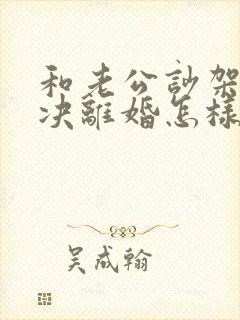 和老公訃架
决離婚怎樣
吴成翰